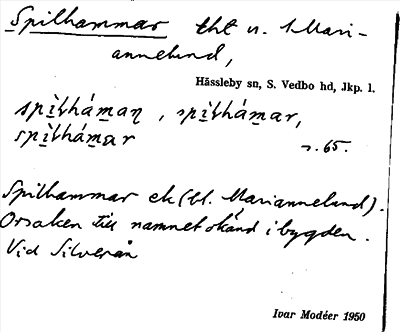 Spilhammar tht u. Mari-
annelund,
Hässleby sn, S. Vedbo hd, Jkp. l.
spilháman, spilhámar,
spilhámar s. 65.
Spilhammar ek (bl. Mariannelund).
Orsaken till namnet okänd i bygden.
Vid Silverån
Ivar Modéer 1950